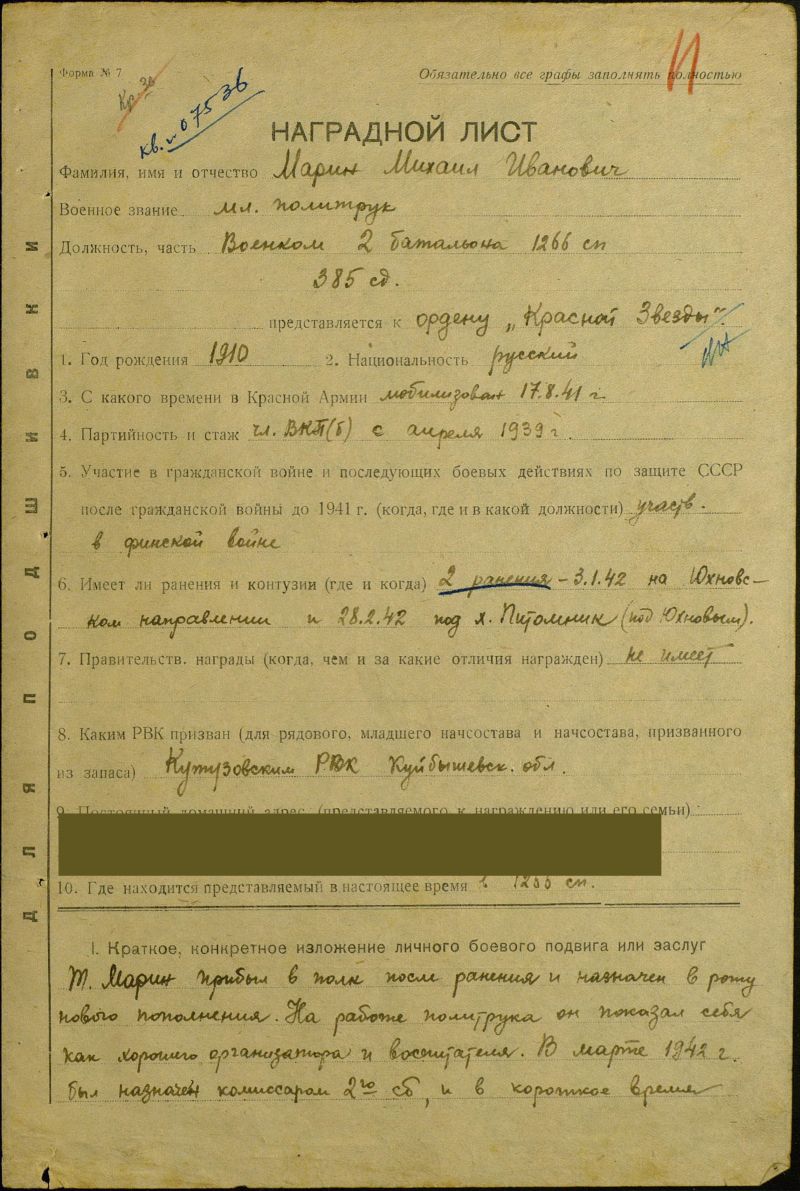 Форма № 7
Обязательно все графы заполнять полностью
кв. 07536
НАГРАДНОЙ ЛИСТ
Фамилия, имя и отчество Марин Михаил Иванович
Военное звание мл. политрук
Должность, часть Военком 2 батальона 1266 сп
385 сд.
представляется к ордену „Красной Звезды".
1. Год рождения 1910 2. Национальность русский
3. С какого времени в Красной Армии мобилизован 17.8.41 г.
4. Партийность и стаж чл. ВКП(б) с апреля 1939 г.
5. Участие в гражданской войне и последующих боевых действиях по защите СССР
после гражданской войны до 1941 г. (когда, где и в какой должности) участв.
в финской войне
6. Имеет ли ранения и контузии (где и когда) 2 ранения – 3.1.42 на Юхновс–
ком направлении и 28.2.42 под х. Питомник (под Юхновым).
7. Правительств. награды (когда, чем и за какие отличия награжден) не имеет
8. Каким РВК призван (для рядового, младшего начсостава и начсостава, призванного
из запаса) Кутузовским РВК Куйбышевск. обл.
9. Постоянный домашний адрес (представляемого к награждению или его семьи)
10. Где находится представляемый в настоящее время в сп.
I. Краткое, конкретное изложение личного боевого подвига или заслуг
Т. Марин прибыл в полк после ранения и назначен в роту
нового пополнения. На работе политрука он показал себя
как хорошего организатора и воспитателя. В марте 1942 г.
был назначен комиссаром 2го сб, и в короткое время
ДЛЯ ПОДШИВКИ